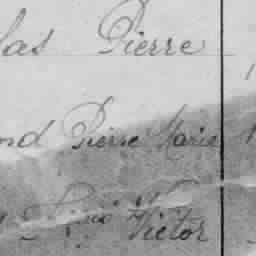 las Pierre
nd Pierre Marie
Victor